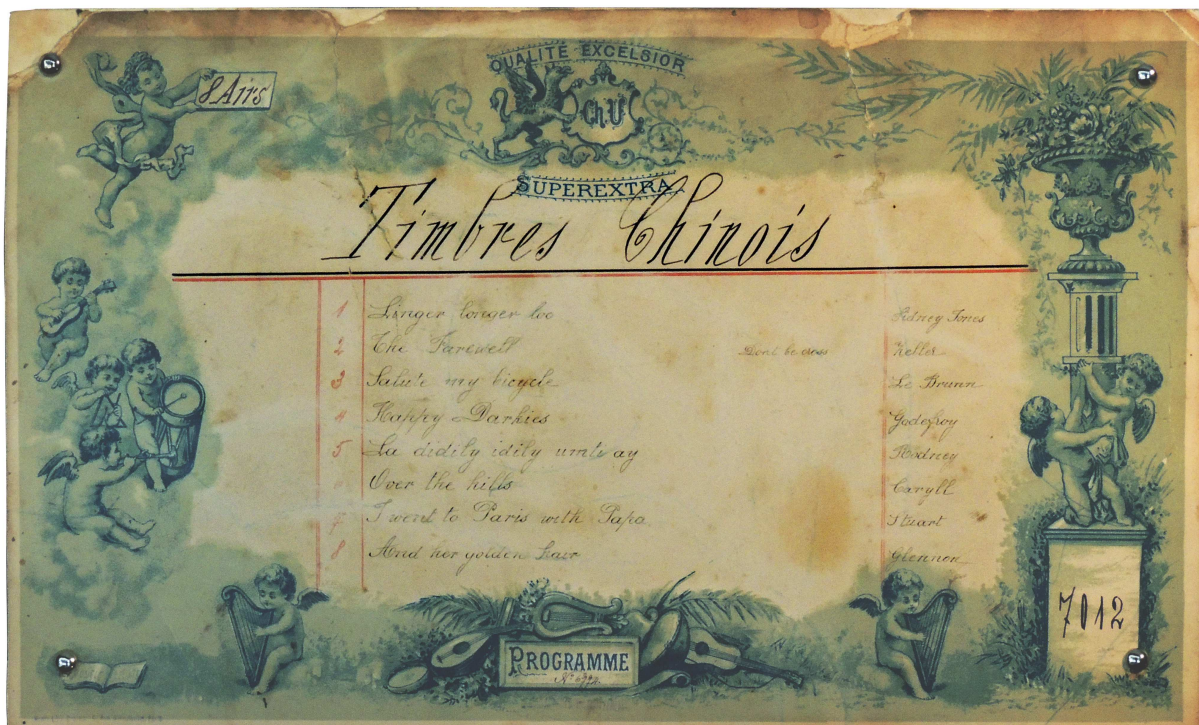 8 Airs
QUALITÉ EXCELSIOR
Ch. U
SUPEREXTRA
Timbres Chinois
1 Linger longer loo Sidney Jones
2 The Farewell Dont be cross Keller
3 Salute my bicycle Le Brunn
4 Happy Darkies Godefroy
5 La didily idily umti ay Rodney
Over the hills Caryll
7 I went to Paris with Papa Stuart
8 And her golden hair Glennon
7012
PROGRAMME
No